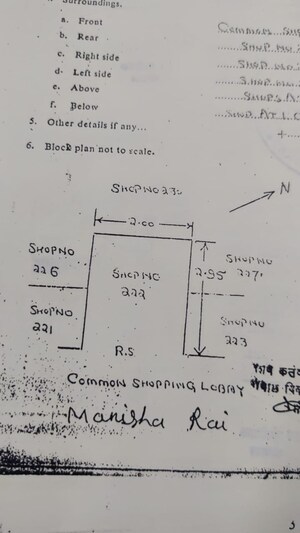 Surroundings.
a. Front
Common
b. Rear
Shop No
c. Right side
Shop No
d. Left side
e. Above
Shops
f. Below
Shop At
5. Other details if any...
6. Block plan not to scale.
N
2.00
SHOP NO
226
SHOP NO
222
2.95
SHOP NO
227
SHOP NO
221
SHOP NO
223
R.S.
COMMON SHOPPING LOBBY
Manisha Rai